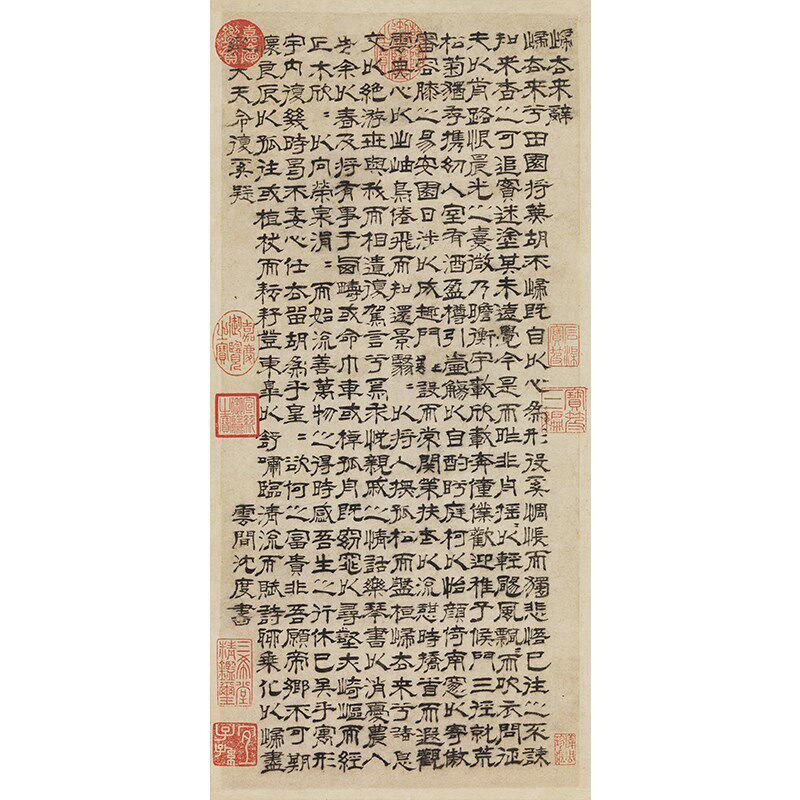 歸去來辭
歸去來兮田園將蕪胡不歸既自以心為形役奚惆悵而獨悲悟已往之不諫
知來者之可追實迷塗其未遠覺今是而昨非舟搖以輕颺風飄而吹衣問征
夫以前路恨晨光之熹微乃瞻衡宇載欣載奔僮僕歡迎稚子候門三徑就荒
松菊猶存携幼入室有酒盈樽引壺觴以自酌眄庭柯以怡顏倚南窗以寄傲
審容膝之易安園日涉以成趣門雖設而常關策扶老以流憩時矯首而遐觀
雲無心以出岫鳥倦飛而知還景翳〻以將入撫孤松而盤桓歸去來兮請息
交以絕游世與我而相遺復駕言兮焉求悅親戚之情話樂琴書以消憂農人
告余以春及將有事于西疇或命巾車或棹孤舟既窈窕以尋壑亦崎嶇而經
丘木欣〻以向榮泉涓〻而始流善萬物之得時感吾生之行休已矣乎寓形
宇內復幾時曷不委心任去留胡為乎皇〻欲何之富貴非吾願帝鄉不可期
懷良辰以孤往或植杖而耘耔登東皋以舒嘯臨清流而賦詩聊乘化以歸盡
樂夫天命復奚疑
雲間沈度書
石渠寶笈
寶笈三編
嘉慶御覽之寶
三希堂精鑑璽
宜子孫